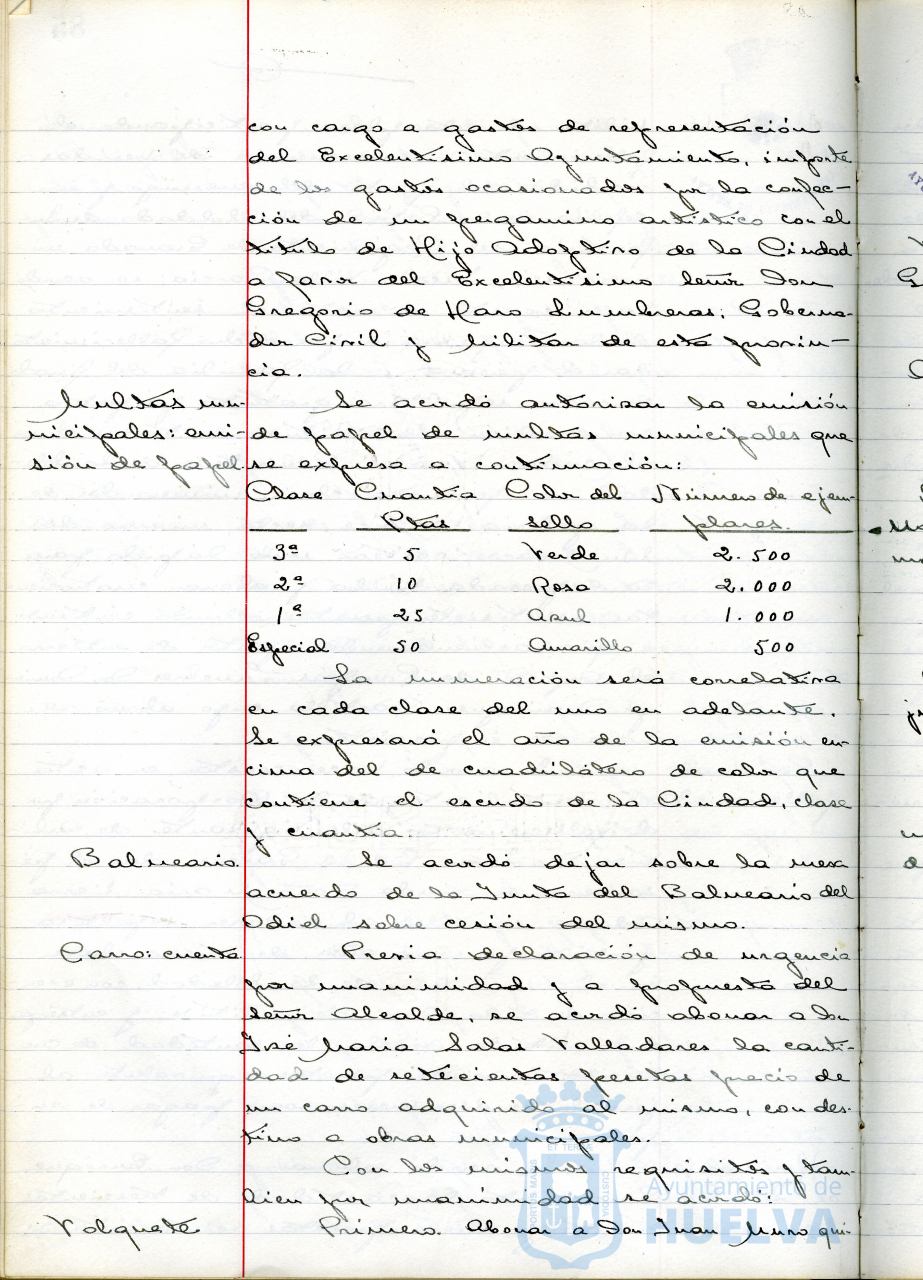 con cargo a gastos de representación
del Excelentísimo Ayuntamiento, importe
de los gastos ocasionados por la confec-
ción de un pergamino artístico con el
título de Hijo Adoptivo de la Ciudad
a favor del Excelentísimo Señor Don
Gregorio de Haro Lumbreras, Goberna-
dor Civil y Militar de esta provin-
cia.
Multas mu-
nicipales: emi-
sión de papel.
Se acordó autorizar la emisión
de papel de multas municipales que
se expresa a continuación:
Clase Cuantía Color del Número de ejem-
Ptas sello plares.
3ª 5 Verde 2.500
2ª 10 Rosa 2.000
1ª 25 Azul 1.000
Especial 50 Amarillo 500
La numeración será correlativa
en cada clase del uno en adelante.
Se expresará el año de la emisión en-
cima del de cuadrilátero de color que
contiene el escudo de la Ciudad, clase
y cuantía.
Balneario.
Se acordó dejar sobre la mesa
acuerdo de la Junta del Balneario del
Odiel sobre cesión del mismo.
Carro: cuenta
Previa declaración de urgencia
por unanimidad y a propuesta del
Señor Alcalde, se acordó abonar a Don
José María Salas Valladares la canti-
dad de setecientas pesetas precio de
un carro adquirido al mismo, con des-
tino a obras municipales.
Con los mismos requisitos y tam-
bien por unanimidad se acordó:
Volquete
Primero. Abonar a Don Juan Muro qui-
Ayuntamiento de
HUELVA
PORTUS MARIS
ET TERRE
CUSTODIA